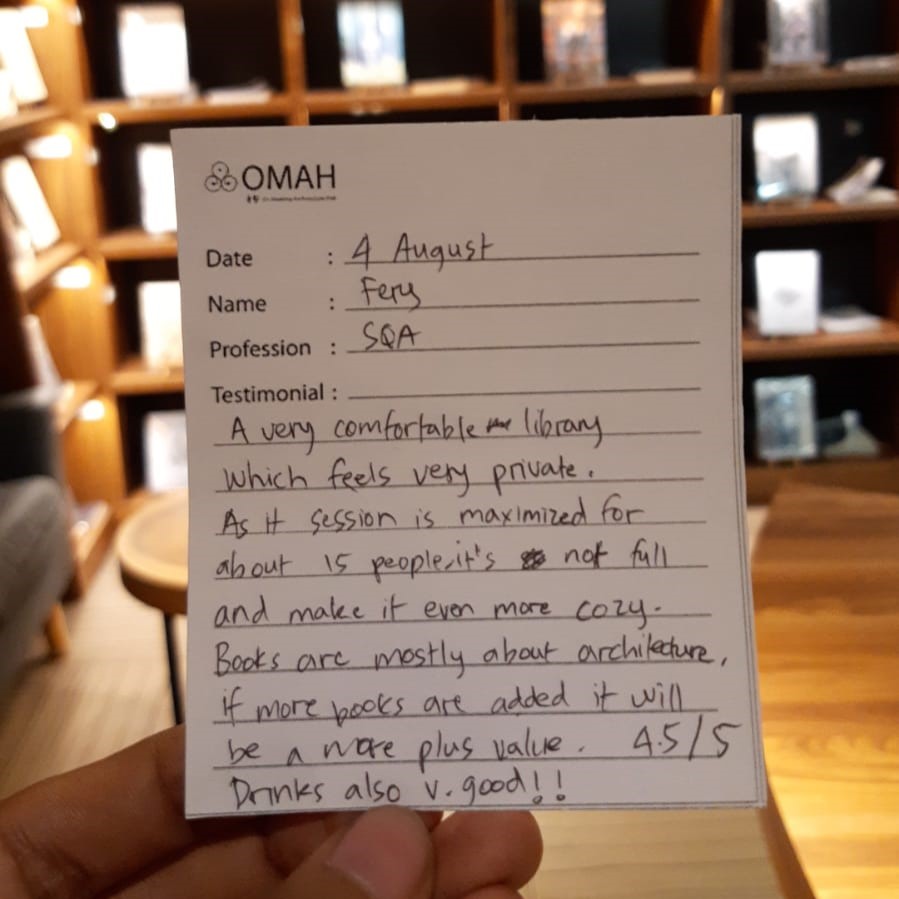 OMAH
Date : 4 August
Name : Fery
Profession : SQA
Testimonial :
A very comfortable library
which feels very private.
As it session is maximized for
about 15 people, it's not full
and make it even more cozy.
Books are mostly about architecture,
if more books are added it will
be a more plus value. 4.5/5
Drinks also v. good!!